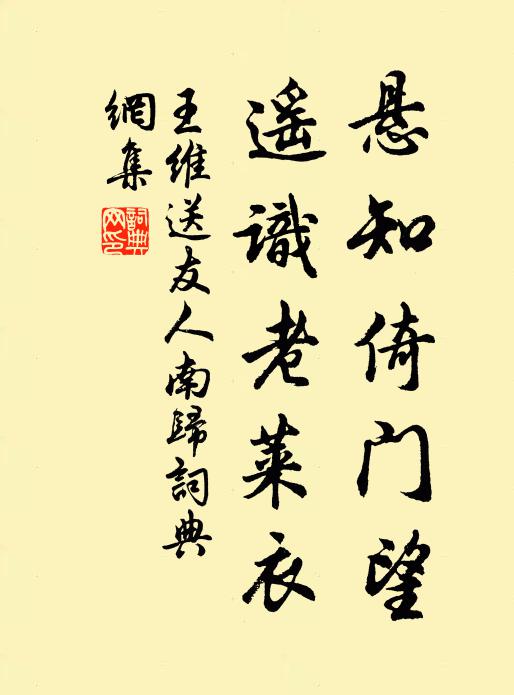 悬知倚门望
遥識老萊衣
王维送友人南歸詞典
網集
詞典
网印